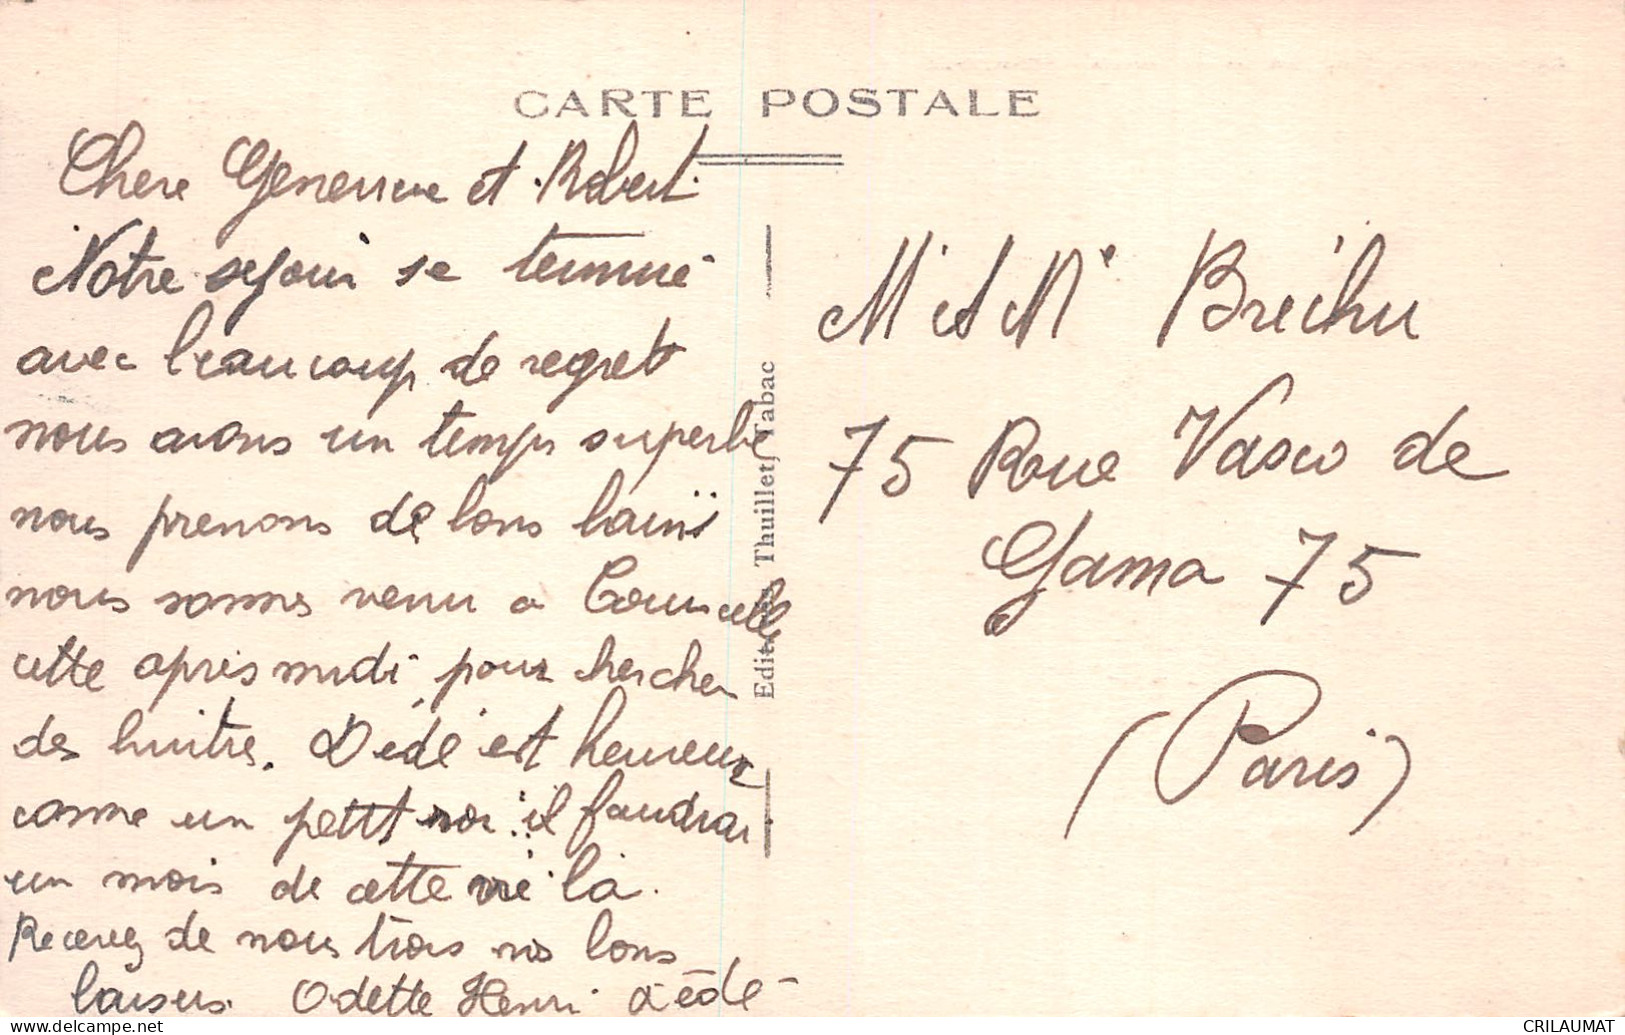 CARTE POSTALE
Chere Genevieve et Robert
Notre sejour se termine
avec beaucoup de regret
nous avons un temps superbe
nous prenons de bons bains
nous sommes venu a
cette après midi pour chercher
des huitres. Dédé est heureux
comme un petit roi. il faudrai
un mois de cette vie là.
Recevez de nous trois nos bons
baisers. Odette Henri Dédé
Editions Thuillet, Tabac
Mr et Me Bréchu
75 Rue Vasco de
Gama 75
(Paris)
CRILAUMAT